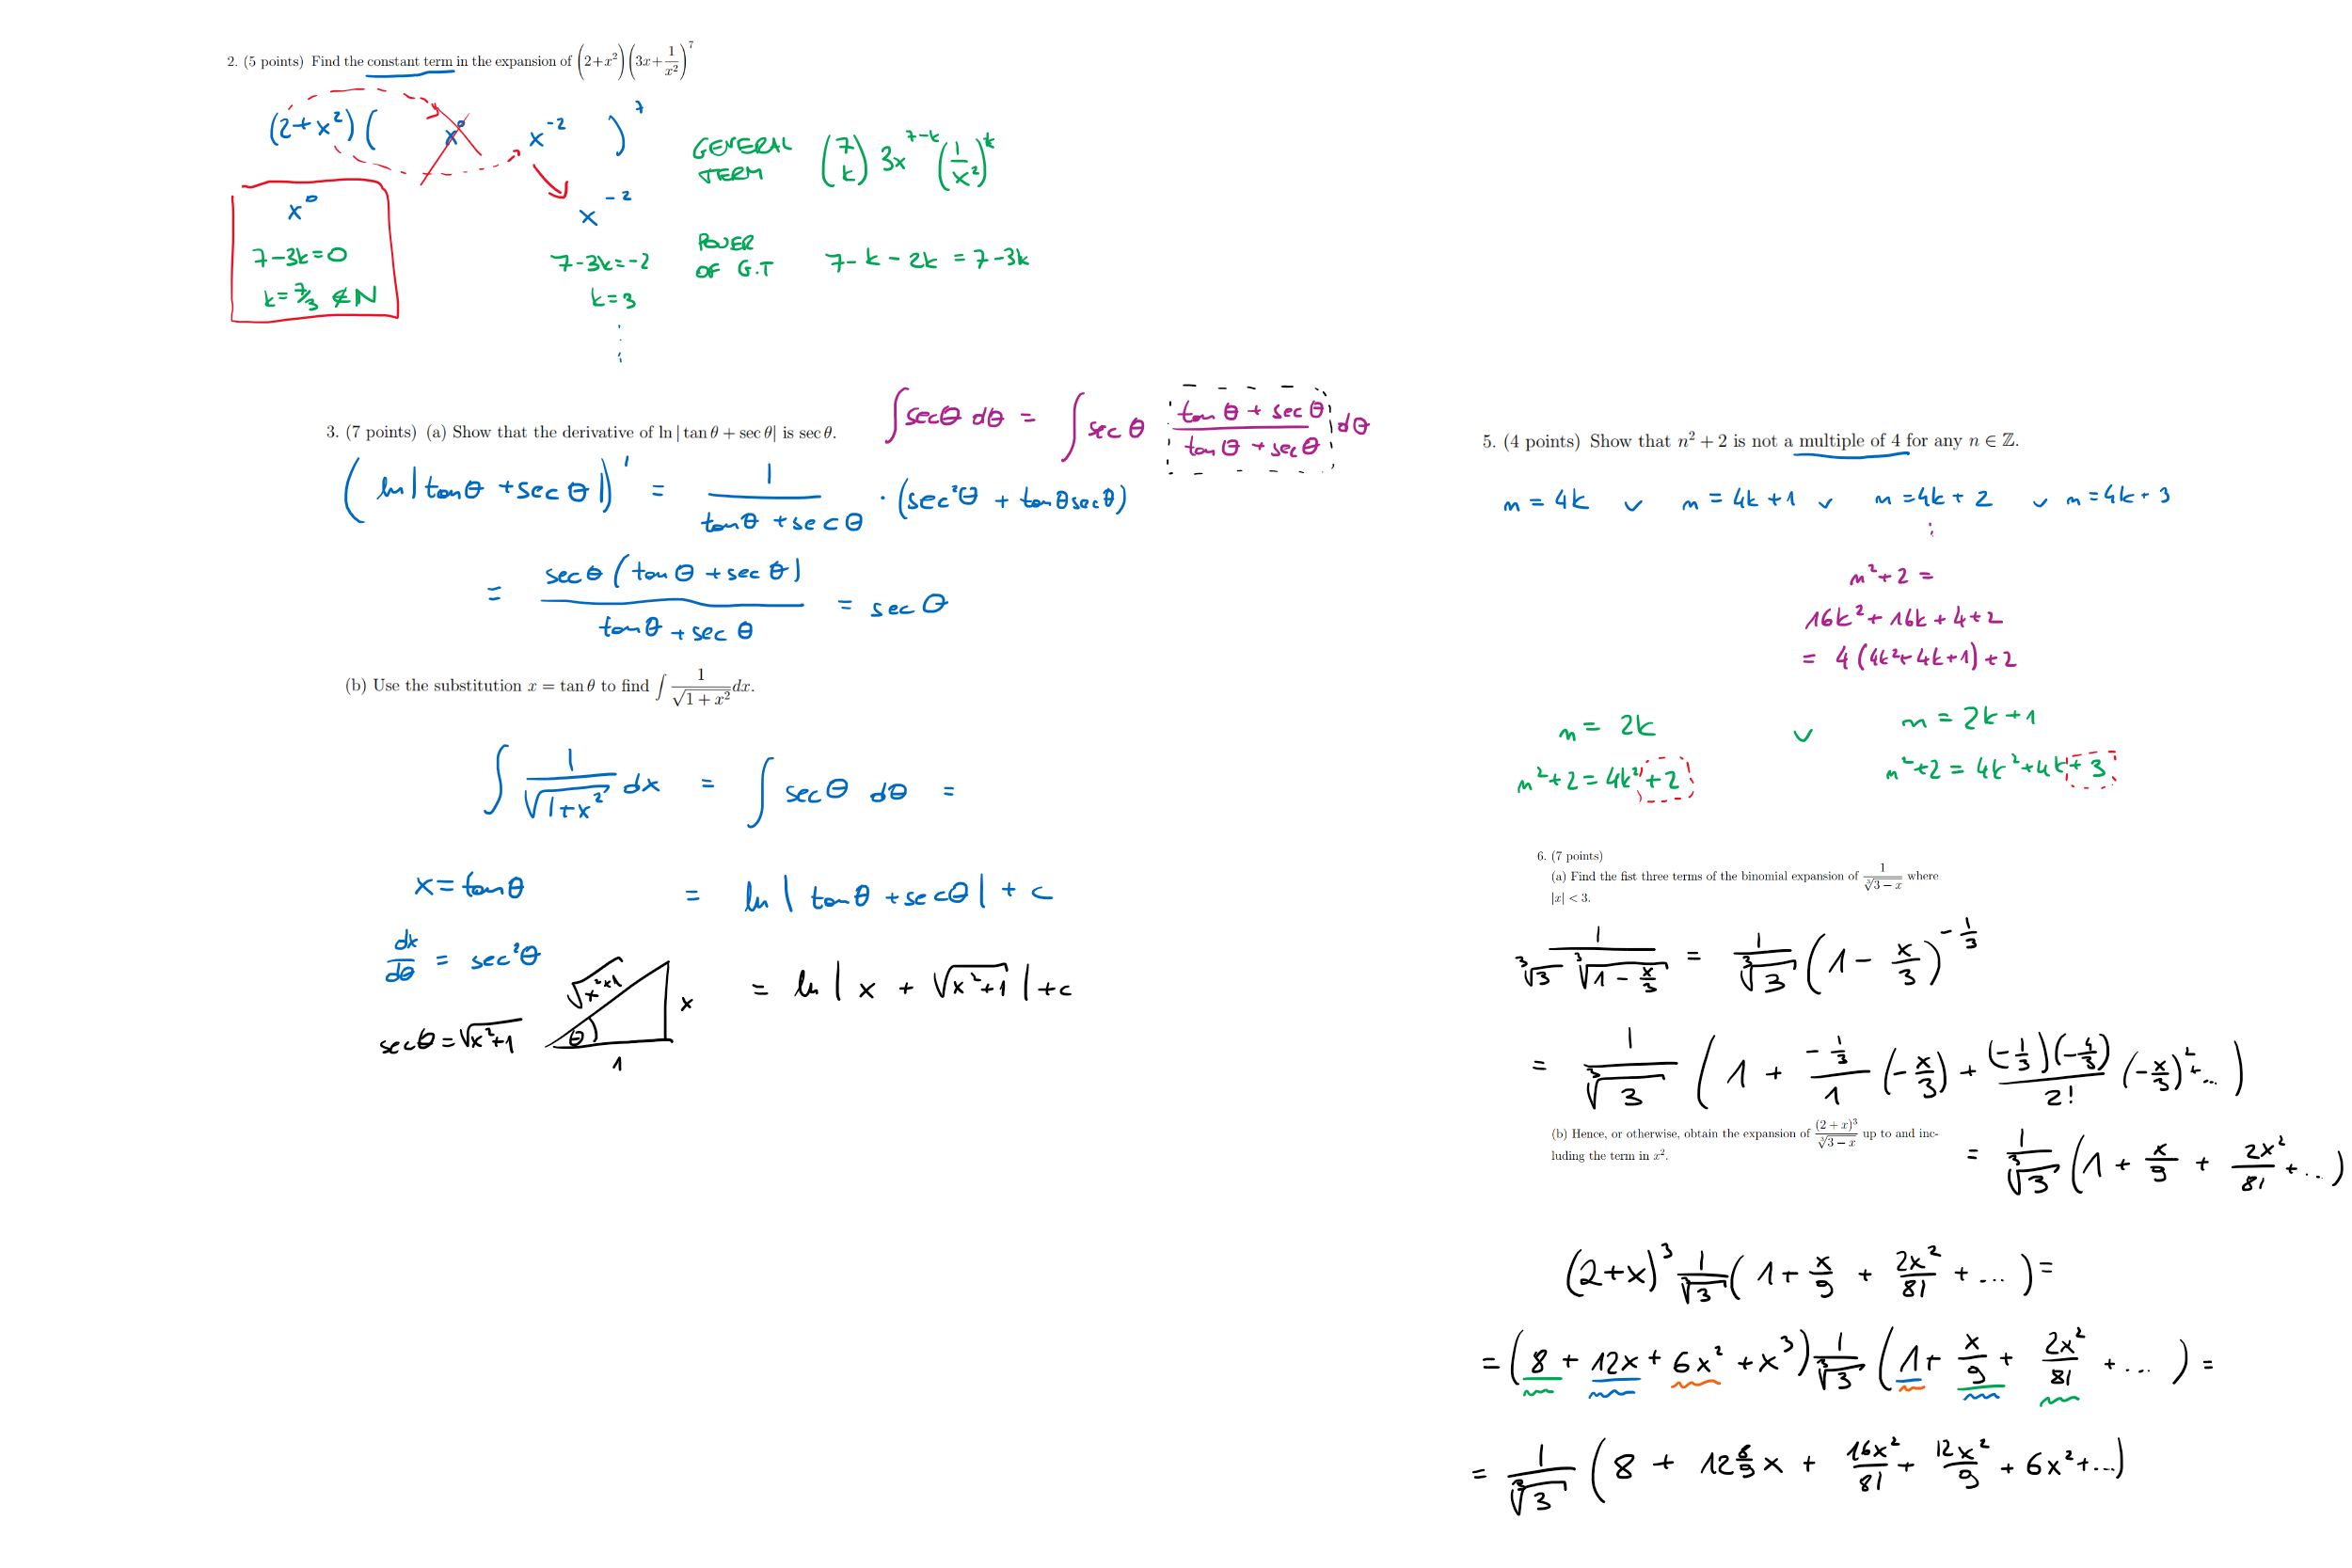 2. (5 points) Find the constant term in the expansion of (2+x²)(3x+1/x²)⁷
(2+x²)( x⁰ x⁻² )⁷
GENERAL TERM (7 k) 3x^(7-k) (1/x²)^k
x⁰
x⁻²
7-3k=0
7-3k=-2
POWER OF G.T 7-k-2k = 7-3k
k=7/3 ∉ N
k=3
3. (7 points) (a) Show that the derivative of ln | tan θ + sec θ| is sec θ.
∫secθ dθ = ∫ sec θ (tan θ + sec θ)/(tan θ + sec θ) dθ
(ln|tanθ + sec θ|)' = 1/(tanθ + secθ) · (sec²θ + tanθsecθ)
= secθ (tanθ + secθ)/(tanθ + secθ) = secθ
(b) Use the substitution x = tan θ to find ∫ 1/√(1 + x²) dx.
∫ 1/√(1+x²) dx = ∫ secθ dθ =
x = tanθ
= ln | tanθ + secθ | + c
dx/dθ = sec²θ
√(x²+1)
x
θ
1
= ln | x + √(x²+1) | + c
secθ = √(x²+1)
5. (4 points) Show that n² + 2 is not a multiple of 4 for any n ∈ ℤ.
n = 4k ∨ n = 4k+1 ∨ n = 4k+2 ∨ n = 4k+3
n²+2 =
16k² + 16k + 4 + 2
= 4 (4k²+4k+1) + 2
n = 2k ∨ n = 2k+1
n²+2 = 4k²+2
n²+2 = 4k²+4k+3
6. (7 points)
(a) Find the fist three terms of the binomial expansion of 1/∛(3 − x) where
|x| < 3.
1/(∛3 ∛(1 - x/3)) = 1/∛3 (1 - x/3)^(-1/3)
= 1/∛3 (1 + (-1/3)/1 (-x/3) + (-1/3)(-4/3)/2! (-x/3)² + ...)
(b) Hence, or otherwise, obtain the expansion of (2 + x)³/∛(3 − x) up to and inc-
luding the term in x².
= 1/∛3 (1 + x/9 + 2x²/81 + ...)
(2+x)³ 1/∛3 (1 + x/9 + 2x²/81 + ...) =
= (8 + 12x + 6x² + x³) 1/∛3 (1 + x/9 + 2x²/81 + ...) =
= 1/∛3 (8 + 12 8/9 x + 16x²/81 + 12x²/9 + 6x² + ...)